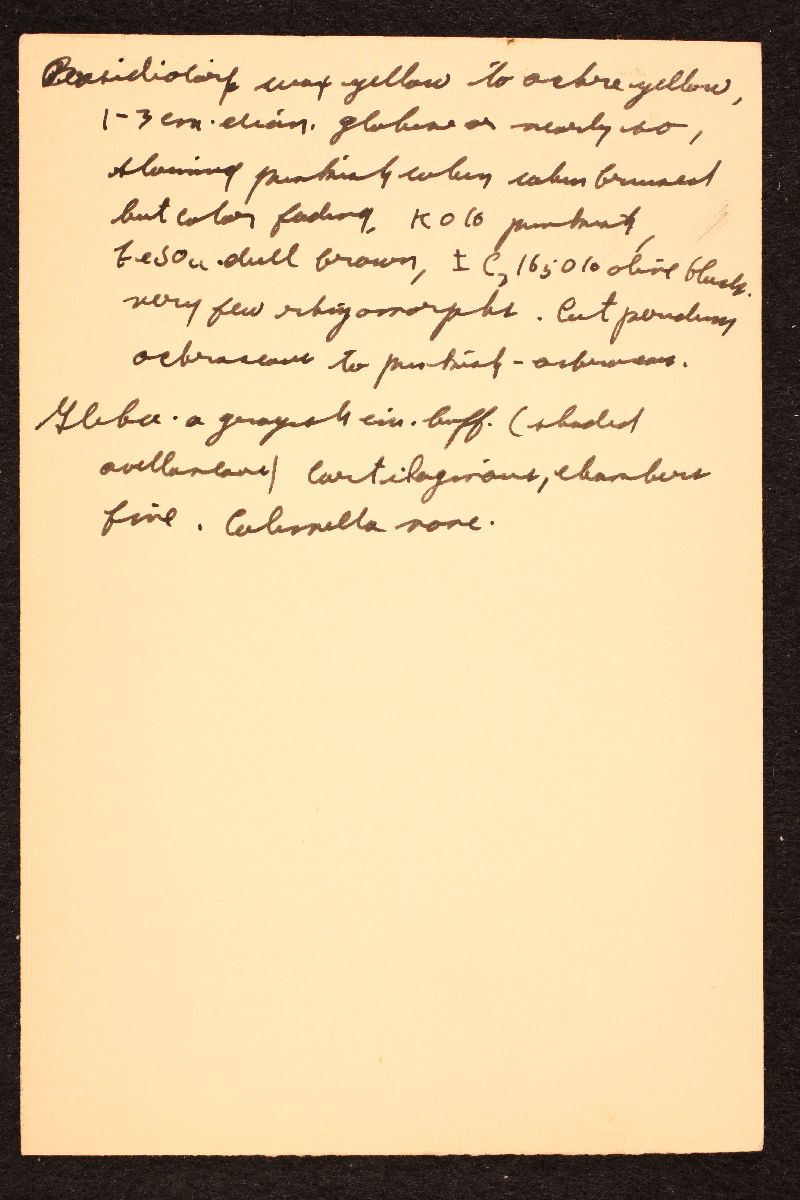 Basidiocarp wax yellow to ochre yellow,
1-3 cm. diam. globose or nearly so,
staining pinkish when bruised
but color fading, KOH pinkish,
FeSO4 dull brown, I C2H5OH olive black.
very few rhizomorphs. Cut peridium
ochraceous to pinkish-ochraceous.
Gleba a grayish cin. buff. (shaded
avellaneous) Cartilaginous, chambers
fine. Columella none.